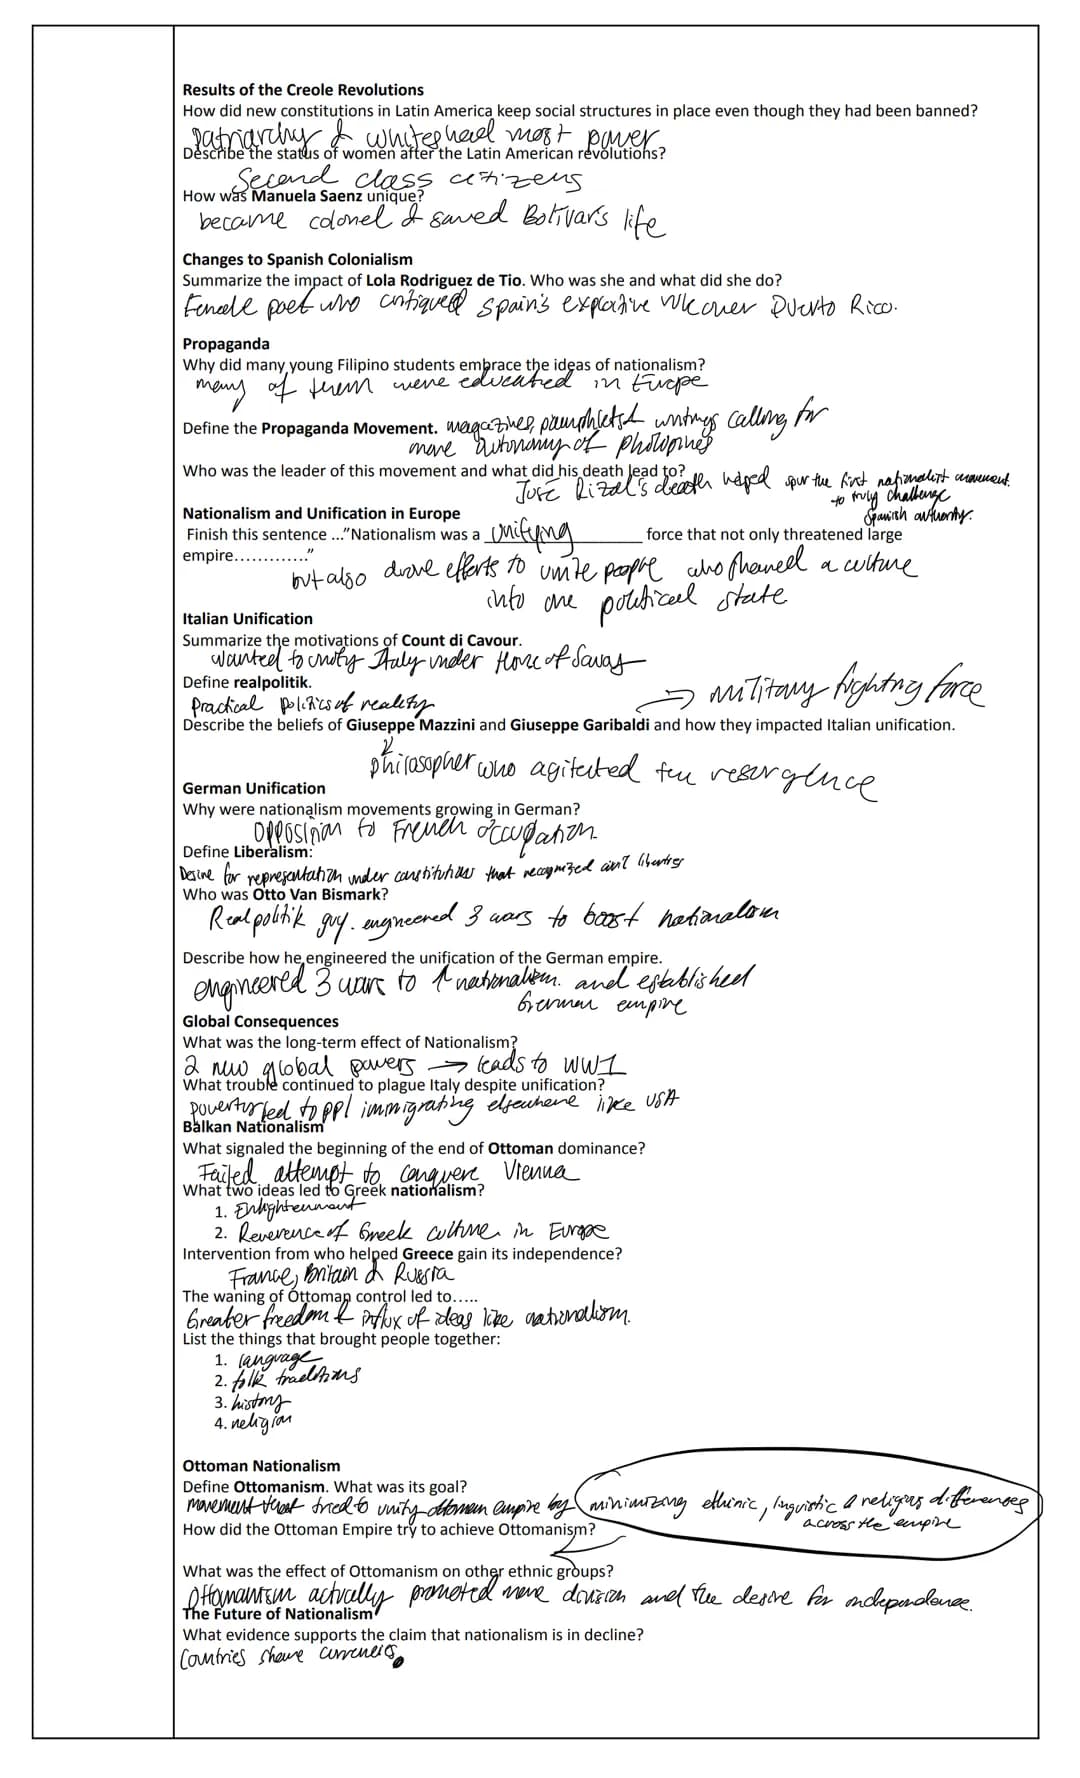 Results of the Creole Revolutions
How did new constitutions in Latin America keep social structures in place even though they had been banned?
patriarchy & whites held most power
Describe the status of women after the Latin American revolutions?
Second class citizens
How was Manuela Saenz unique?
became colonel & saved Bolivar's life
Changes to Spanish Colonialism
Summarize the impact of Lola Rodriguez de Tio. Who was she and what did she do?
Female poet who critiqued Spain's rule over Puerto Rico.
Propaganda
Why did many young Filipino students embrace the ideas of nationalism?
many of them were educated in Europe
Define the Propaganda Movement. magazines, pamphlets & writings calling for
more autonomy of
Who was the leader of this movement and what did his death lead to?
José Rizal's death helped spur the first nationalist movement
to truly challenge
Spanish authority.
Nationalism and Unification in Europe
Finish this sentence ..."Nationalism was a unifying force that not only threatened large
empire............."
but also drove efforts to unite people who shared a culture
into one political state
Italian Unification
Summarize the motivations of Count di Cavour.
wanted to unify Italy under House of Savoy
Define realpolitik.
Practical politics of reality
→ military fighting force
Describe the beliefs of Giuseppe Mazzini and Giuseppe Garibaldi and how they impacted Italian unification.
philosopher who agitated for resurgence
German Unification
Why were nationalism movements growing in German?
Opposition to French occupation
Define Liberalism:
Desire for representation under constitutions that recognized civil liberties
Who was Otto Van Bismark?
Realpolitik guy. engineered 3 wars to boost nationalism
Describe how he engineered the unification of the German empire.
engineered 3 wars to ↑ nationalism. and established
German empire
Global Consequences
What was the long-term effect of Nationalism?
2 new global powers → leads to WW1
What trouble continued to plague Italy despite unification?
poverty led to ppl immigrating elsewhere like USA
Balkan Nationalism
What signaled the beginning of the end of Ottoman dominance?
Failed attempt to conquere Vienna
What two ideas led to Greek nationalism?
1. Enlightenment
2. Reverence of Greek culture in Europe
Intervention from who helped Greece gain its independence?
France, Britain & Russia
The waning of Ottoman control led to.....
Greater freedom & influx of ideas like nationalism.
List the things that brought people together:
1. language
2. folk traditions
3. history
4. religion
Ottoman Nationalism
Define Ottomanism. What was its goal?
movement that tried to unify ottoman empire by minimizing ethinic, linguistic & religious differences
across the empire
How did the Ottoman Empire try to achieve Ottomanism?
What was the effect of Ottomanism on other ethnic groups?
Ottomanism actually promoted more division and the desire for independence.
The Future of Nationalism
What evidence supports the claim that nationalism is in decline?
Countries share